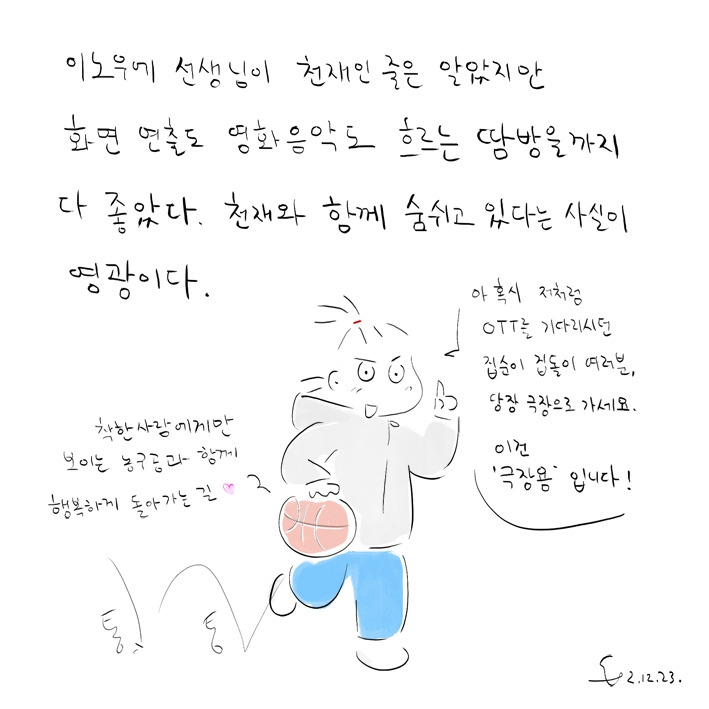 이노우에 선생님이 천재인 줄은 알았지만
화면 연출도 영화음악도 흐르는 땀방울까지
다 좋았다. 천재와 함께 숨쉬고 있다는 사실이
영광이다.
아 혹시 저처럼
OTT를 기다리시던
집순이 집돌이 여러분,
당장 극장으로 가세요.
이건
'극장용' 입니다!
착한사람에게만
보이는 농구공과 함께
행복하게 돌아가는 길
통
통
2.12.23.